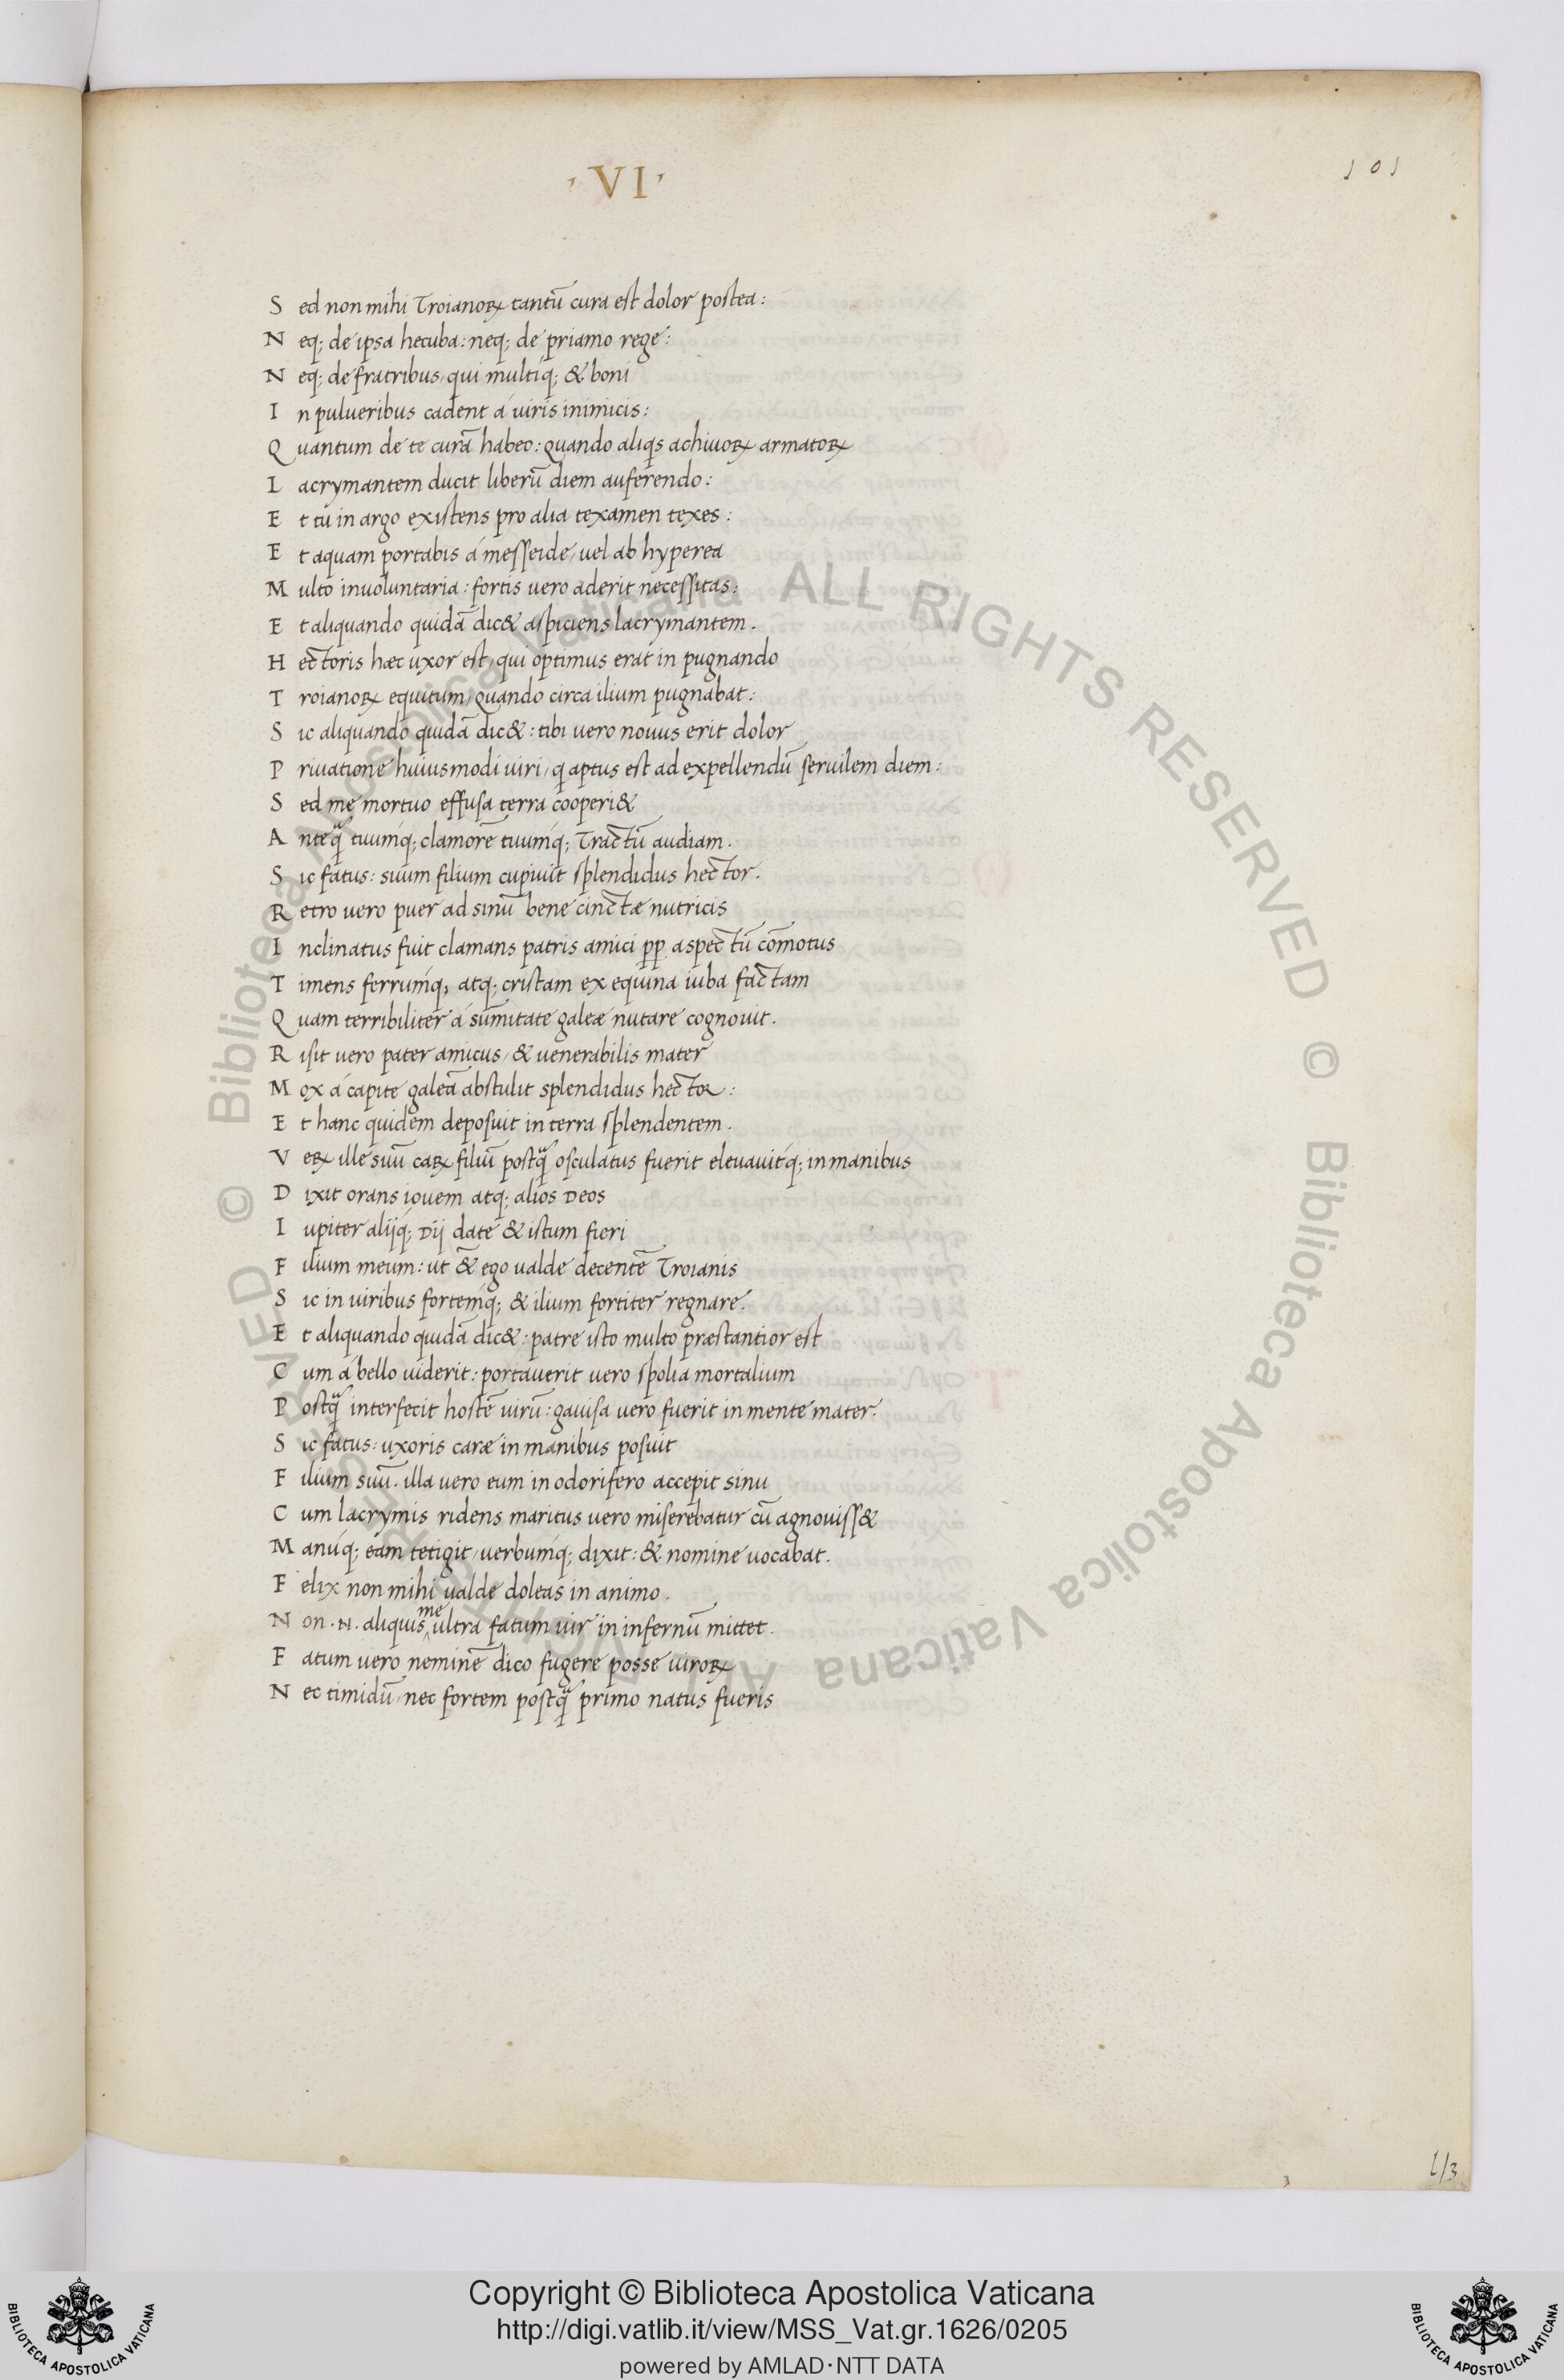 ·VI·
101
Sed non mihi Troianoꝝ tantū cura est dolor postea:
Neq; de ipsa hecuba: neq; de priamo rege:
Neq; de fratribus, qui multiq; & boni
In pulueribus cadent á uiris inimicis:
Quantum de te curā habeo: quando aliqs achiuoꝝ armatoꝝ
Lacrymantem ducit liberū diem auferendo:
Et tu in argo existens pro alia texamen texes:
Et aquam portabis á messeide, uel ab hyperea
Multo inuoluntaria: fortis uero aderit necessitas:
Et aliquando quidā dic& aspiciens lacrymantem.
Hectoris hæc uxor est, qui optimus erat in pugnando
Troianoꝝ equitum, quando circa ilium pugnabat:
Sic aliquando quidā dic&: tibi uero nouus erit dolor
Priuatione huiusmodi uiri, q aptus est ad expellendū seruilem diem:
Sed me mortuo effusa terra cooperi&
Anteq̃ tuumq; clamorē tuumq; Tractū audiam.
Sic fatus: suum filium cupiuit splendidus hector.
Retro uero puer ad sinū bene cinctæ nutricis
Inclinatus fuit clamans patris amici ꝓꝑ aspectū cōmotus
Timens ferrumq; atq; cristam ex equina iuba factam
Quam terribiliter á sūmitate galeæ nutare cognouit.
Risit uero pater amicus, & uenerabilis mater
Mox á capite galeā abstulit splendidus hector:
Et hanc quidem deposuit in terra splendentem.
Veꝝ ille suū caꝝ filiū postq̃ osculatus fuerit eleuauitq; in manibus
Dixit orans iouem atq; alios Deos
Iupiter alijq; Dij date & istum fieri
Filium meum: ut & ego ualde decentē Troianis
Sic in uiribus fortemq; & ilium fortiter regnare.
Et aliquando quidā dic&: patre isto multo præstantior est
Cum á bello uiderit: portauerit uero spolia mortalium
Postq̃ interfecit hostē uirū: gauisa uero fuerit in mente mater.
Sic fatus: uxoris caræ in manibus posuit
Filium suū. illa uero eum in odorifero accepit sinu
Cum lacrymis ridens maritus uero miserebatur cū agnouiss&
Manuq; eam tetigit, uerbumq; dixit: & nomine uocabat.
Felix non mihi ualde doleas in animo.
Non .N. aliquis me ultra fatum uir in infernū mittet.
Fatum uero neminē dico fugere posse uiroꝝ
Nec timidū, nec fortem postq̃ primo natus fueris
© Biblioteca Apostolica Vaticana ALL RIGHTS RESERVED © Biblioteca Apostolica Vaticana ALL RIGHTS RESERVED
Copyright © Biblioteca Apostolica Vaticana
http://digi.vatlib.it/view/MSS_Vat.gr.1626/0205
powered by AMLAD·NTT DATA
BIBLIOTECA APOSTOLICA VATICANA
BIBLIOTECA APOSTOLICA VATICANA